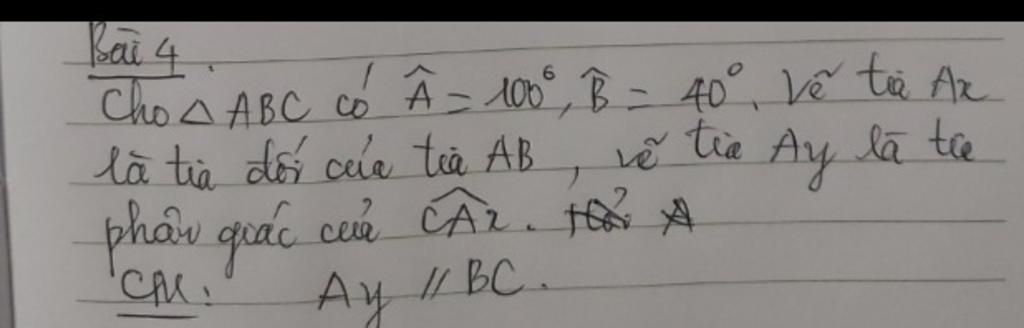 Bài 4.
Cho △ABC có Â = 100°, B̂ = 40°. Vẽ tia Ax
là tia đối của tia AB, vẽ tia Ay là tia
phân giác của \widehat{CAx}.
CM: Ay // BC.